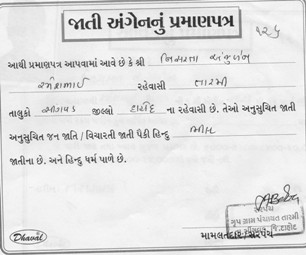 જાતી અંગેનું પ્રમાણપત્ર
૧૨૫
આથી પ્રમાણપત્ર આપવામાં આવે છે કે શ્રી
રહેવાસી તારમી
તાલુકો જીલ્લો દાહોદ ના રહેવાસી છે. તેઓ અનુસુચિત
અનુસુચિત જન જાતિ / વિચારતી જાતી પૈકી હિન્દુ ભીલ
જાતીના છે. અને હિન્દુ ધર્મ પાળે છે.
સરપંચ
ગ્રુપ ગ્રામ પંચાયત તારમી
જિ.દાહોદ
Dhaval
મામલતદાર/સરપંચ